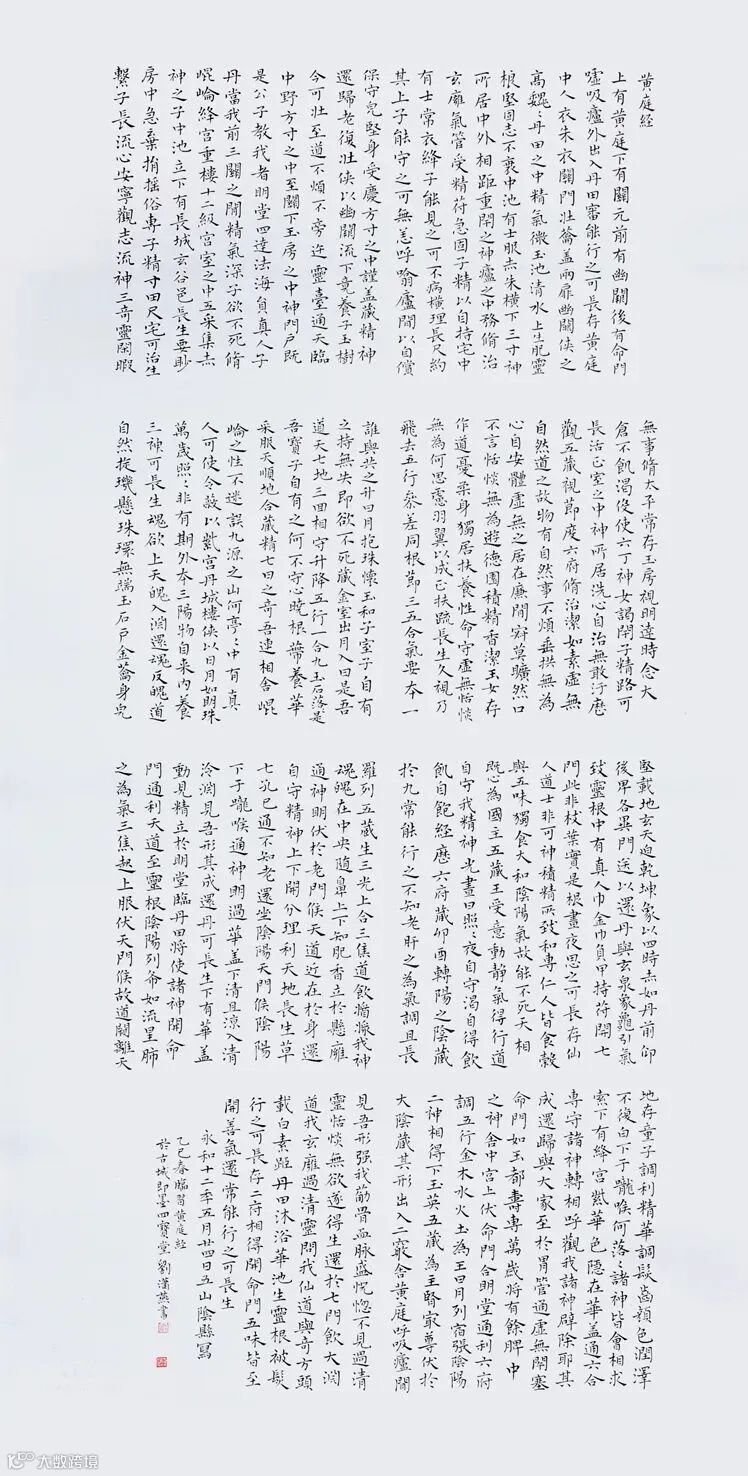 黄庭经
上有黄庭下有關元前有幽闕後有命門
嘘吸廬外出入丹田審能行之可長存黄庭
中人衣朱衣關門壮蘥盖兩扉幽闕侠之
高魏〻丹田之中精氣微玉池清水上生肥靈
根堅固志不衰中池有士服赤朱横下三寸神
所居中外相距重閇之神廬之中務脩治
玄㢃氣管受精苻急固子精以自持宅中
有士常衣絳子能見之可不病横理長尺約
其上子能守之可無恙呼噏廬閒以自償
保守兒堅身受慶方寸之中謹盖藏精神
還歸老復壮侠以幽闕流下竟養子玉樹
今可壮至道不煩不旁迕靈臺通天臨
中野方寸之中至關下玉房之中神門户既
是公子教我者明堂四達法海負真人子
丹當我前三關之閒精氣深子欲不死脩
崐崘絳宫重樓十二級宫室之中五采集赤
神之子中池立下有長城玄谷邑長生要眇
房中急棄捐摇俗專子精寸田尺宅可治生
繫子長流心安寧觀志流神三奇靈閑暇
無事脩太平常存玉房視明達時念大
倉不飢渴役使六丁神女謁閇子精路可
長活正室之中神所居洗心自治無敢汙歷
觀五藏視節度六府脩治潔如素虚無
自然道之故物有自然事不煩垂拱無為
心自安體虚無之居在廉閒寂莫曠然口
不言恬惔無為遊德園積精香潔玉女存
作道憂柔身獨居扶養性命守虚無恬惔
無為何思慮羽翼以成正扶疏長生久視乃
飛去五行參差同根節三五合氣要本一
誰與共之升日月抱珠懷玉和子室子自有
之持無失即欲不死藏金室出月入日是吾
道天七地三回相守升降五行一合九玉石落是
吾寶子自有之何不守心曉根蔕養華
采服天順地合藏精七日之奇吾連相合崐
崘之性不迷誤九源之山何亭〻中有真
人可使令蔽以紫宫丹城樓侠以日月如明珠
萬歲照〻非有期外本三陽物自来内養
三神可長生魂欲上天魄入淵還魂反魄道
自然㨔璣懸珠環無端玉石戶金蘥身皃
堅載地玄天迫乾坤象以四時赤如丹前仰
後卑各異門送以還丹與玄泉象龜引氣
致靈根中有真人巾金巾負甲持符開七
門此非枝葉實是根晝夜思之可長存仙
人道士非可神積精所致和專仁人皆食穀
與五味獨食大和陰陽氣故能不死天相
既心為國主五藏王受意動静氣得行道
自守我精神光晝日照〻夜自守渴自得飲
飢自飽經歷六府藏卯酉轉陽之陰藏
於九常能行之不知老肝之為氣調且長
羅列五藏生三光上合三焦道飲醬漿我神
魂魄在中央随鼻上下知肥香立於懸廱
通神明伏於老門候天道近在於身還
自守精神上下開分理利天地長生草
七孔已通不知老還坐陰陽天門候陰陽
下于嚨喉通神明過華盖下清且涼入清
泠淵見吾形其成還丹可長生下有華盖
動見精立於明堂臨丹田将使諸神開命
門通利天道至靈根陰陽列布如流星肺
之為氣三焦起上服伏天門候故道闚離天
地存童子調利精華調髮齒顔色潤澤
不復白下于嚨喉何落〻諸神皆會相求
索下有絳宫紫華色隱在華盖通六合
專守諸神轉相呼觀我諸神辟除耶其
成還歸與大家至於胃管通虚無閇塞
命門如玉都壽專萬歲将有餘脾中
之神舍中宫上伏命門合明堂通利六府
調五行金木水火土為王日月列宿張陰陽
二神相得下玉英五藏為主腎最尊伏於
大陰藏其形出入二竅舍黄庭呼吸廬閒
見吾形强我筋骨血脉盛恍惚不見過清
靈恬惔無欲遂得生還於七門飲大淵
道我玄㢃過清靈問我仙道與奇方頭
載白素距丹田沐浴華池生靈根被髮
行之可長存二府相得開命門五味皆至
開善氣還常能行之可長生
永和十二年五月廿四日五山陰縣寫
乙巳春臨習黄庭經
於古城即墨四寳堂劉藩燕書
大数跨境